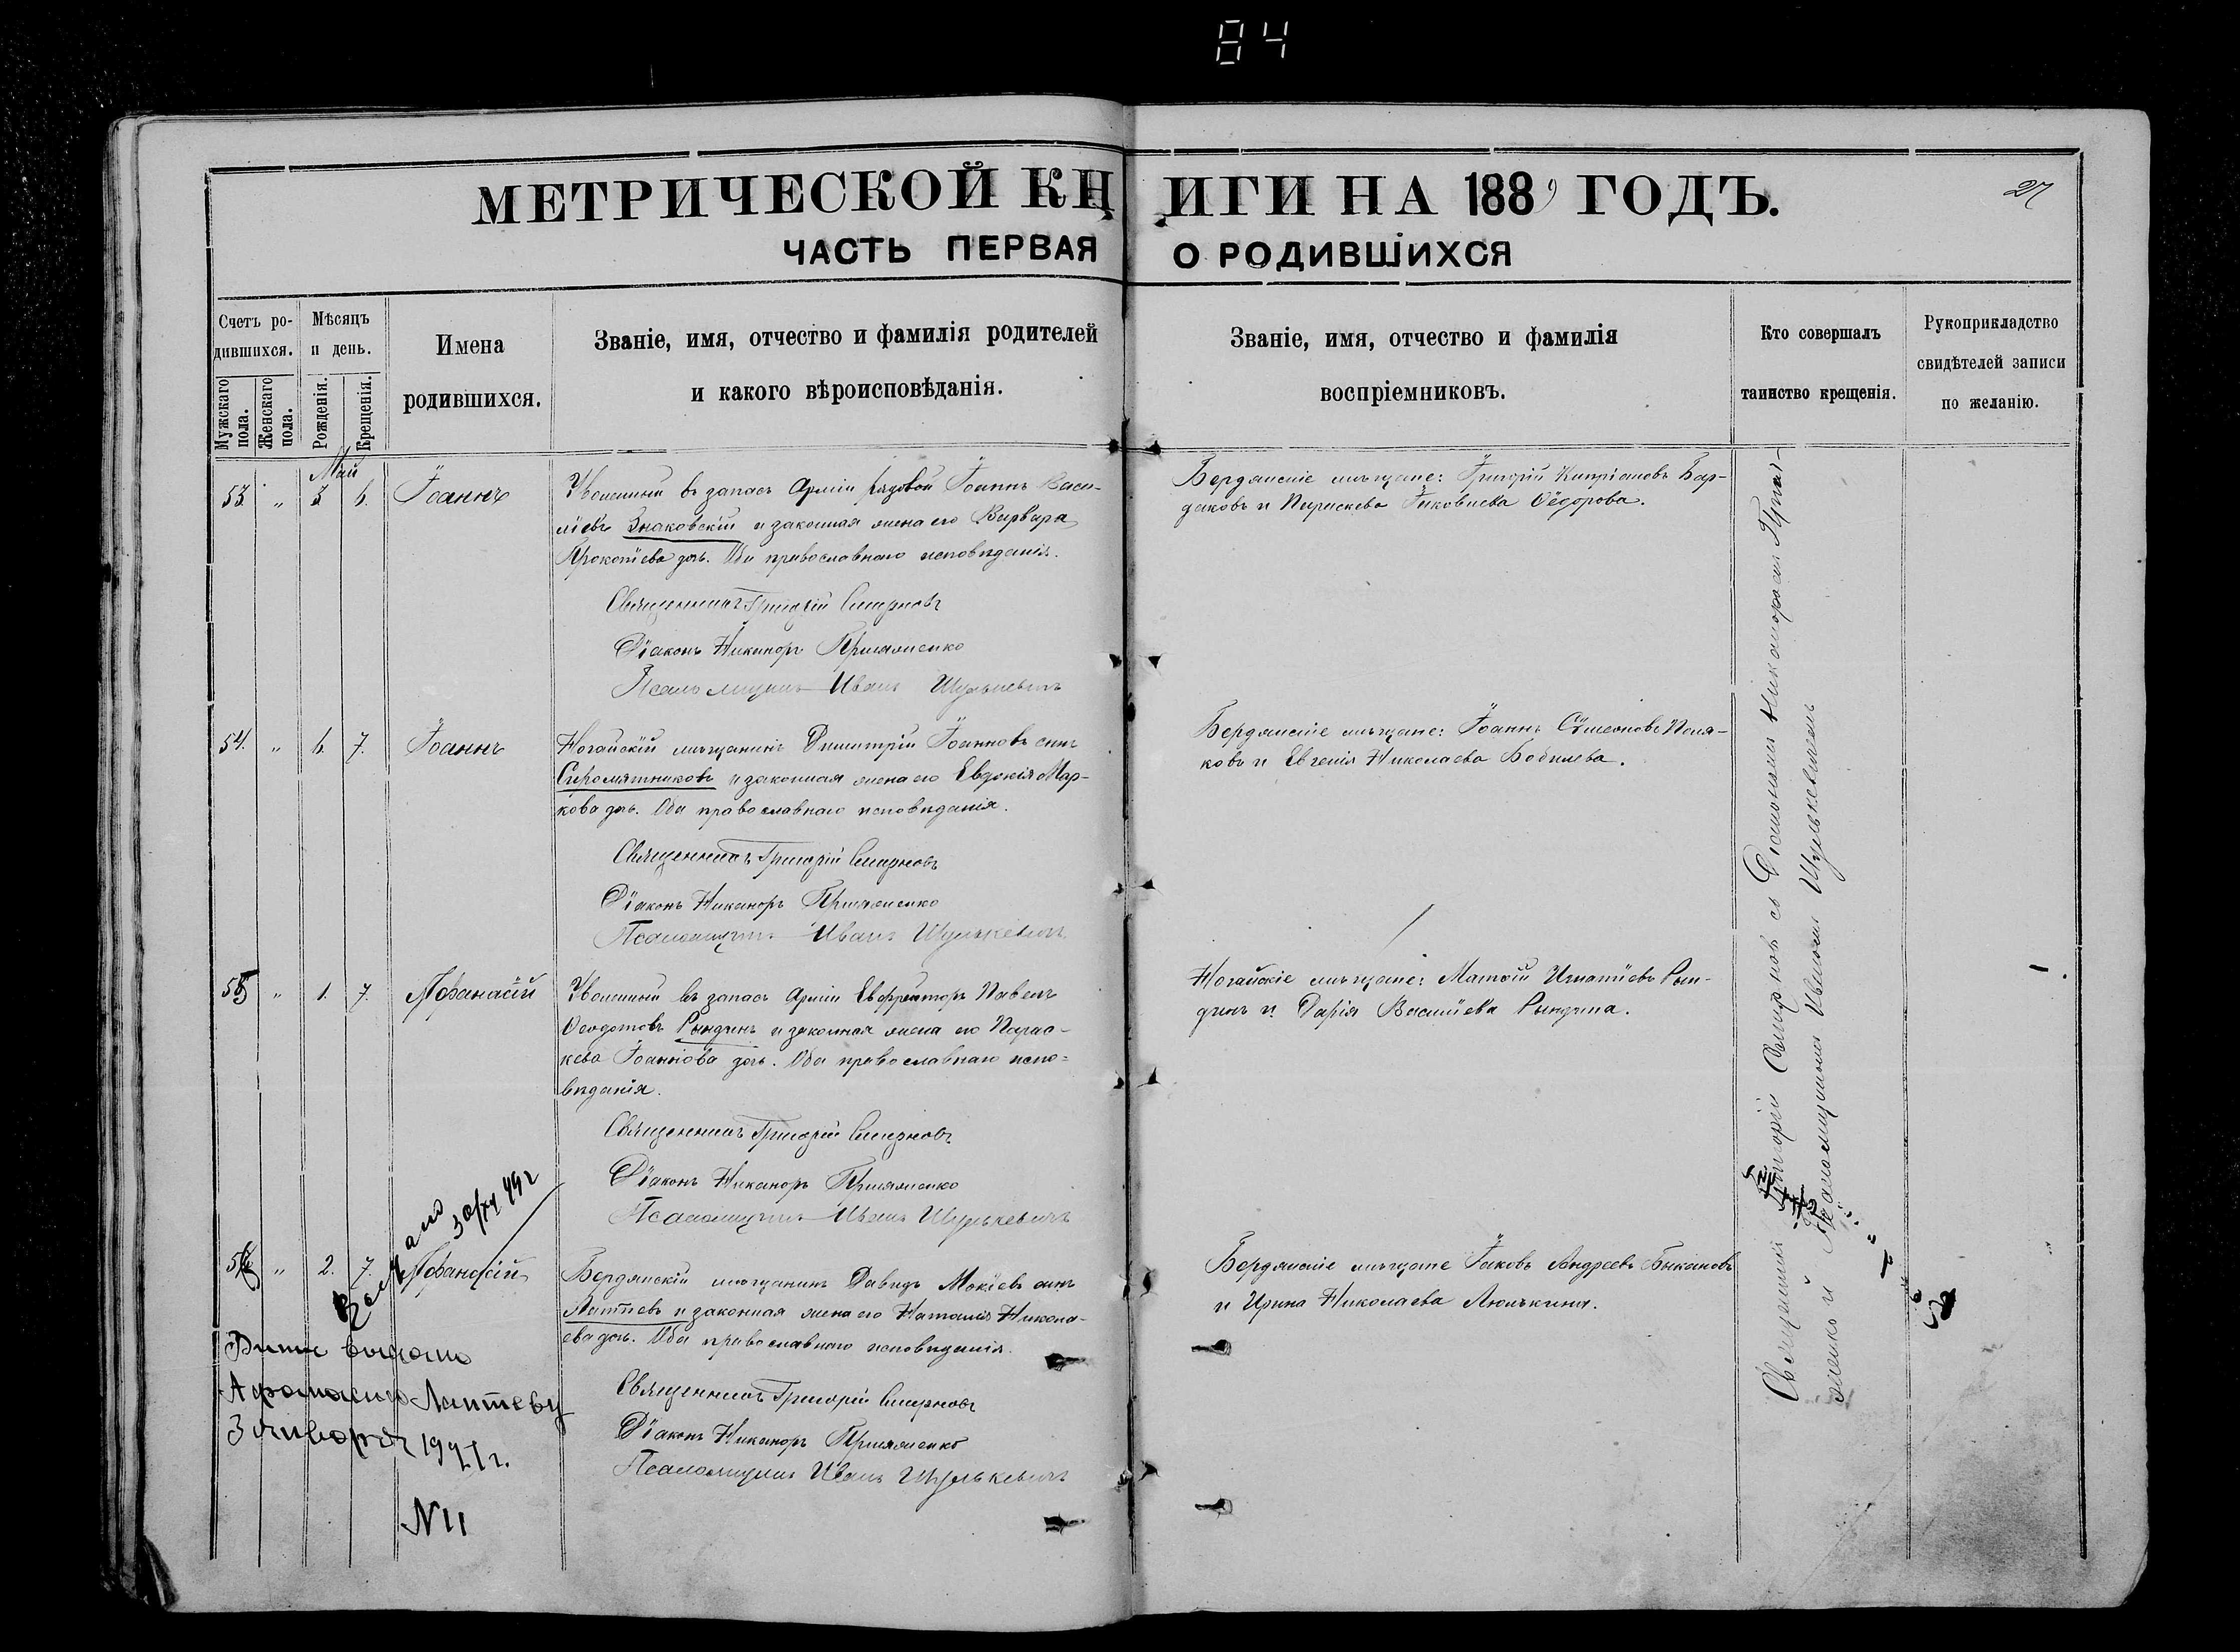 84
МЕТРИЧЕСКОЙ КНИГИ НА 1889 ГОДЪ.
27
ЧАСТЬ ПЕРВАЯ О РОДИВШИХСЯ
Счетъ ро-
дившихся.
Мужскаго пола.
Женскаго пола.
Мѣсяцъ
и день.
Рожденія.
Крещенія.
Имена
родившихся.
Званіе, имя, отчество и фамилія родителей
и какого вѣроисповѣданія.
Званіе, имя, отчество и фамилія
воспріемниковъ.
Кто совершалъ
таинство крещенія.
Рукоприкладство
свидѣтелей записи
по желанію.
Май
53. " 3 6. Іоаннъ
Уволенный въ запасъ Арміи рядовой Іоаннъ Васи-
ліевъ Знаковскій и законная жена его Варвара
Прокопіева дочь. Оба православнаго исповѣданія.
Священникъ Григорій Смирновъ
Діаконъ Никаноръ
Псаломщикъ Иванъ Шулькевичъ
Бердянскіе мѣщане: Григорій Кипріановъ Бар-
даковъ и Параскева Іаковлева Ѳедорова.
54. " 6. 7. Іоаннъ
Ногайскій мѣщанинъ Димитрій Іоанновъ сынъ
Сыромятниковъ и законная жена его Евдокія Мар-
кова дочь. Оба православнаго исповѣданія.
Священникъ Григорій Смирновъ
Діаконъ Никаноръ
Псаломщикъ Иванъ Шулькевичъ
Бердянскіе мѣщане: Іоаннъ Сѵмеоновъ Поля-
ковъ и Евгенія Николаева Бобылева.
55 " 1. 7. Аѳанасій
Уволенный въ запасъ Арміи Ефрейторъ Павелъ
Ѳеодотовъ Рындинъ и законная жена его Парас-
кева Іоаннова дочь. Оба православнаго испо-
вѣданія.
Священникъ Григорій Смирновъ
Діаконъ Никаноръ
Псаломщикъ Иванъ Шулькевичъ
Ногайскіе мѣщане: Матѳій Игнатіевъ Рын-
динъ и Дарія Василіева Рындина.
56 " 2. 7. Аѳанасій
Бердянскій мѣщанинъ Давидъ Мокіевъ сынъ
Лаптевъ и законная жена его Наталія Никола-
ева дочь. Оба православнаго исповѣданія.
Священникъ Григорій Смирновъ
Діаконъ Никаноръ
Псаломщикъ Иванъ Шулькевичъ
Бердянскіе мѣщане Іаковъ Андреевъ Быкановъ
и Ирина Николаева Люлькина.
выдано
Афанасию Лаптеву
3 января 1921 г.
N 11
Священникъ Григорій Смирновъ съ Діакономъ Никаноромъ
и Псаломщикомъ Иваномъ Шулькевичемъ